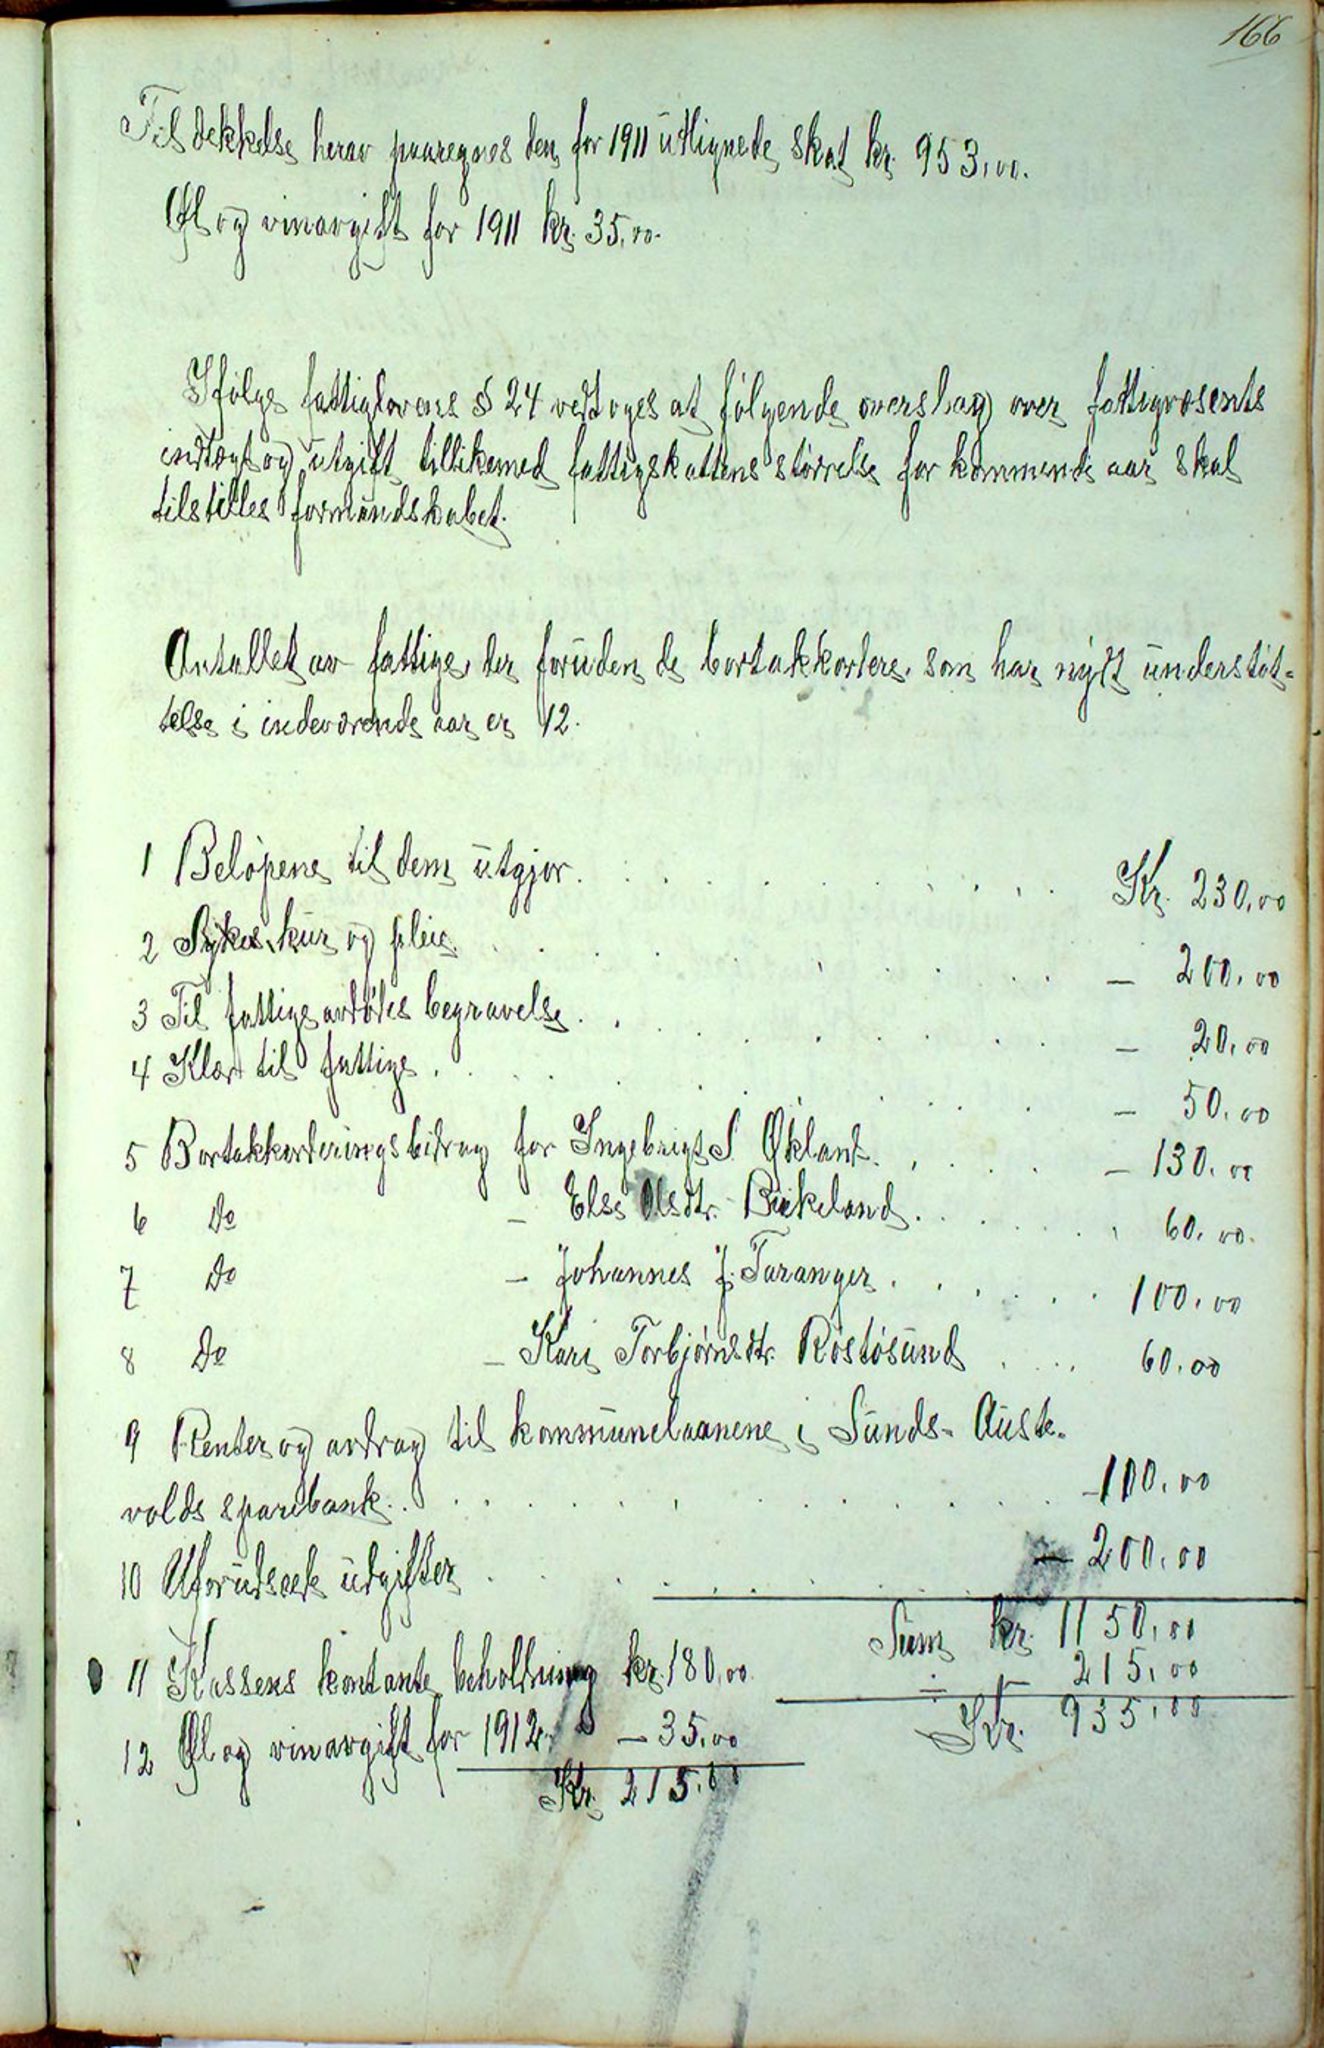 166
Til dekkelse herav paaregnes den for 1911 utlignede skat kr. 953,00.
Øl og vinavgift for 1911 kr. 35,00.
Ifølge fattiglovens § 24 vedtoges at følgende overslag over fattigvæsents
indtægt og utgift tillikemed fattigskattens størrelse for kommende aar skal
tilstilles formandskabet.
Antallet av fattige, der foruden de bortakkorterte, som har nydt understøt-
telse i indeværende aar er 12.
1 Beløpene til dem utgjør. Kr. 230,00
2 Sykes kur og pleie. — 200,00
3 Til fattige avdødes begravelse. — 20,00
4 Klær til fattige. — 50,00
5 Bortakkorderingsbidrag for Ingebrigt S. Økland. — 130,00
6 Do — Else Olsdtr. Birkeland. 60,00.
7 Do — Johannes J. Taranger. 100,00
8 Do — Kari Torbjørnsdtr. Rostøsund 60,00
9 Renter og avdrag til kommunelaanene i Sunds- Auste-
volds sparebank. —100,00
10 Uforudseete udgifter — 200,00
Sum kr. 1150,00
11 Kassens kontante beholdning kr. 180,00 ÷ — 215,00
12 Øl og vinavgift for 1912. — 35,00 Kr. 935,00
Kr. 215,00